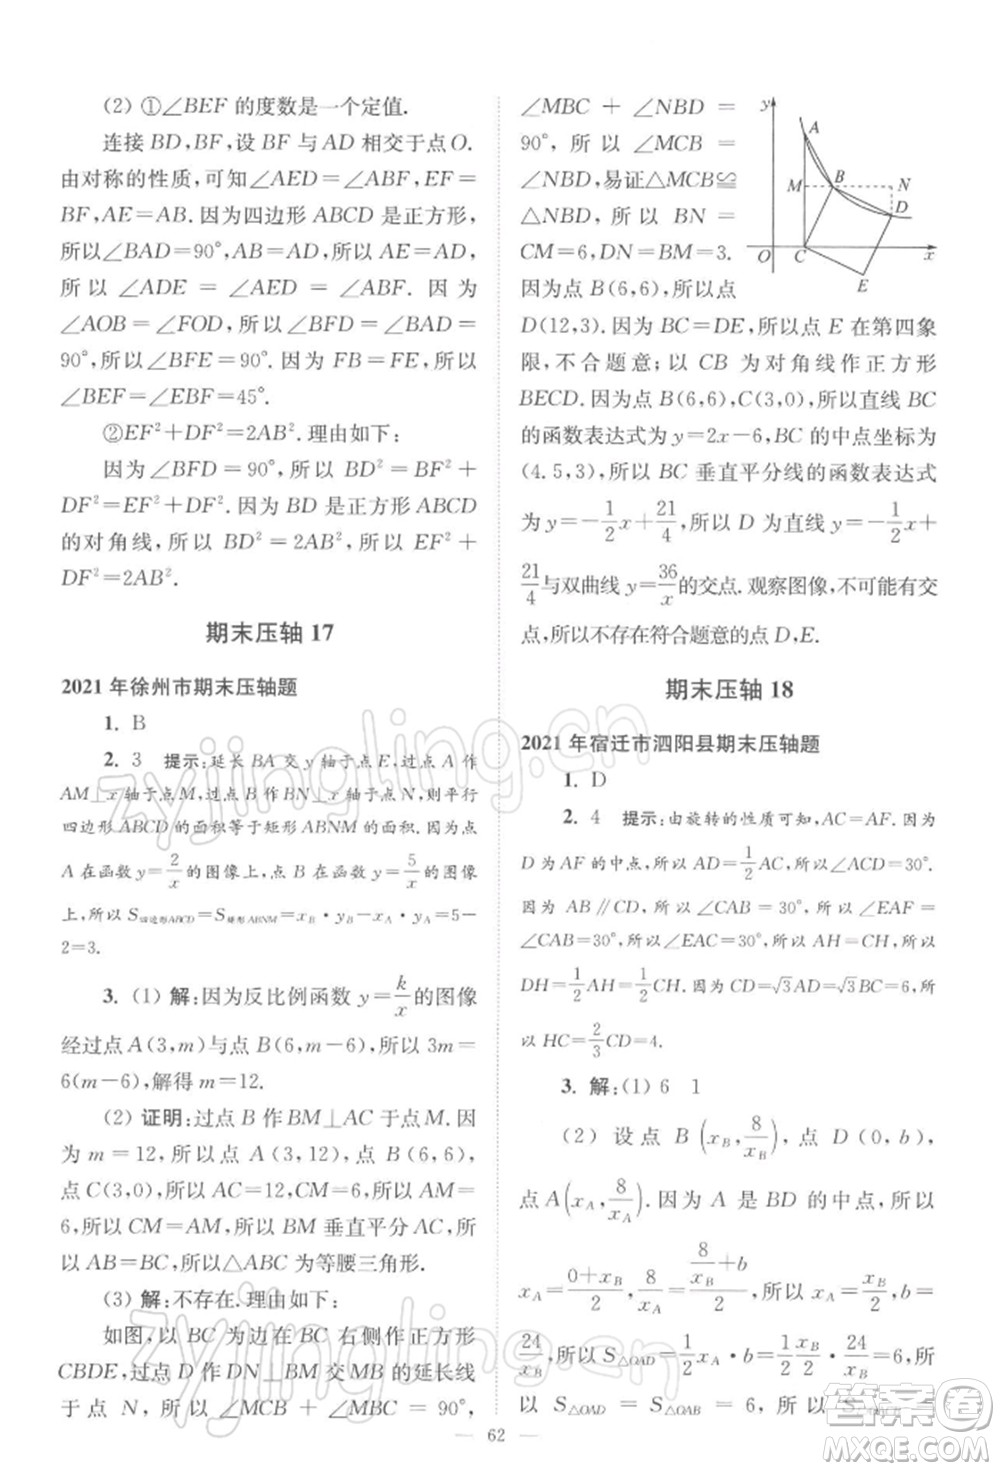 (2) ①∠BEF 的度数是一个定值.
连接 BD,BF,设 BF 与 AD 相交于点 O.
由对称的性质,可知∠AED=∠AFE,EF=
BF,AE=AB. 因为四边形 ABCD 是正方形,
所以∠BAD=90°,AB=AD,所以 AE=AD,
所以∠ADE=∠AED. 因为
∠AOB=∠FOD,所以∠BFD=∠BAD=
90°,所以∠BFE=90°. 因为 FB=FE,所以
∠BEF=∠EBF=45°.
②EF²+DF²=2AB².理由如下:
因为∠BFD=90°,所以 BD²=BF²+
DF²=EF²+DF². 因为 BD 是正方形 ABCD
的对角线,所以 BD²=2AB²,所以 EF²+
DF²=2AB².
期末压轴 17
2021 年徐州市期末压轴题
1. B
2. 3 提示:延长 BA 交 y 轴于点 E,过点 A 作
AM⊥x 轴于点 M,过点 B 作 BN⊥x 轴于点 N,则平行
四边形 ABCD 的面积等于矩形 ABNM 的面积. 因为点
A 在函数 y=2/x 的图像上,点 B 在函数 y=5/x 的图像
上,所以 S四边形ABCD=S矩形ABNM=x_B·y_B-x_A·y_A=5-
2=3.
3. (1) 解:因为反比例函数 y=k/x 的图像
经过点 A(3,m)与点 B(6,m-6),所以 3m=
6(m-6),解得 m=12.
(2) 证明:过点 B 作 BM⊥AC 于点 M. 因
为 m=12,所以点 A(3,12),点 B(6,6),
点 C(3,0),所以 AC=12,CM=6,所以 AM=
6,所以 CM=AM,所以 BM 垂直平分 AC,所
以 AB=BC,所以△ABC 为等腰三角形.
(3) 解:不存在.理由如下:
如图,以 BC 为边在 BC 右侧作正方形
CBDE,过点 D 作 DN⊥BM 交 MB 的延长线
于点 N,所以∠MCB+∠MBC=90°,
∠MBC+∠NBD=
90°,所以∠MCB=
∠NBD,易证△MCB≌
△NBD,所以 BN=
CM=6,DN=BM=3.
因为点 B(6,6),所以点
y
A
M
B
N
D
O
C
x
E
D(12,3). 因为 BC=DE,所以点 E 在第四象
限,不合题意;以 CB 为对角线作正方形
BECD. 因为 B(6,6),C(3,0),所以直线 BC
的函数表达式为 y=2x-6,BC 的中点坐标为
(4.5,3),所以 BC 垂直平分线的函数表达式
为 y=-1/2x+21/4,所以 D 为直线 y=-1/2x+
21/4与双曲线 y=36/x 的交点. 观察图像,不可能有交
点,所以不存在符合题意的点 D,E.
期末压轴 18
2021 年宿迁市泗阳县期末压轴题
1. D
2. 4 提示:由旋转的性质可知,AC=AF. 因为
D 为 AF 的中点,所以 AD=1/2AC,所以∠ACD=30°.
因为 AB∥CD,所以∠CAB=30°,所以∠EAF=
∠CAB=30°,所以∠EAC=30°,所以 AH=CH,所以
DH=1/2AH=1/2CH. 因为 CD=√3AD=√3BC=6,所
以 HC=2/3CD=4.
3. 解:(1) 6 1
(2) 设点 B(x_B,8/x_B),点 D(0,b),
点 A(x_A,8/x_A). 因为 A 是 BD 的中点,所以
x_A=(0+x_B)/2,8/x_A=(8/x_B+b)/2,所以 b=
24/x_B,所以 S△OAD=1/2x_A·b=1/2·x_B/2·24/x_B=6,所
以 S△OAD=S△OAB=6,所以
62
zyjingling.cn
zyjingling.cn
答案卷
MXQE.COM